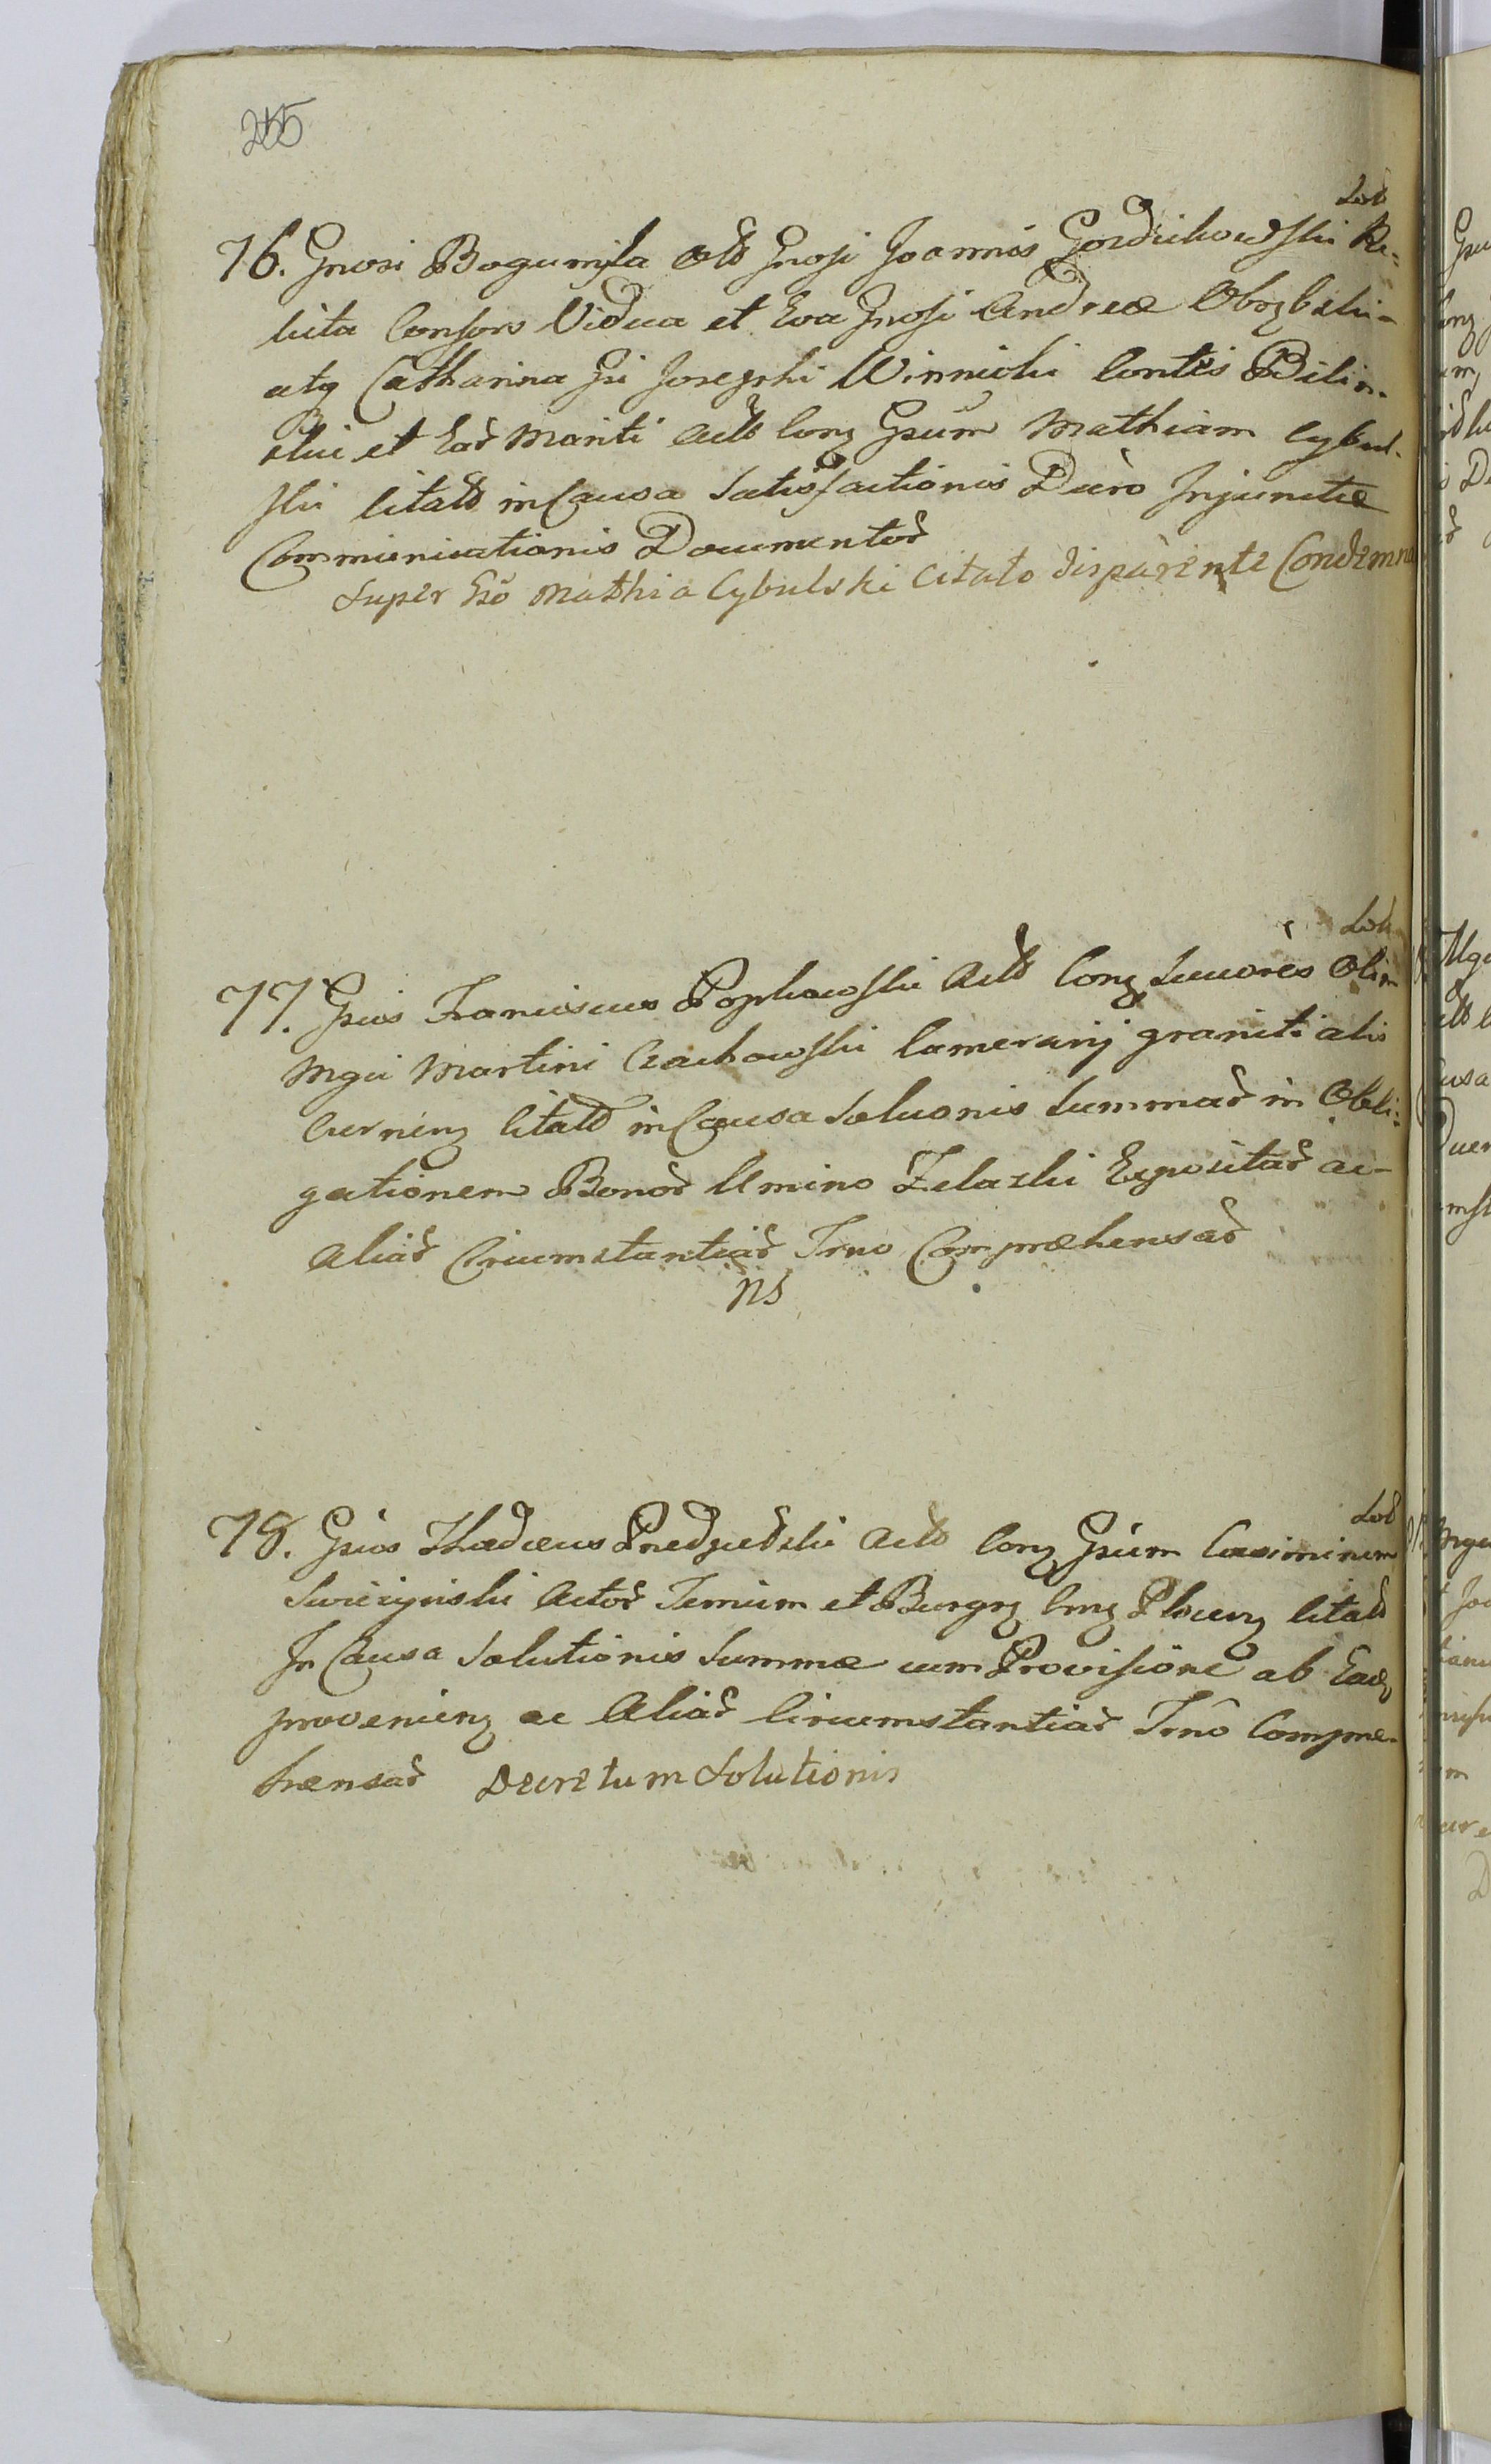 255
Sol
76. Gnosi Bogumiła olim Gnosi Joannis Gozdzikowski Re-
licta Consors Vidua et Eva Gnosi Andreæ Obrębski
atq Catharina Gsi Josephi Winnicki Contes Bilin-
skie et Ead Mariti Act Cong Gsum Mathiam Cybul-
ski Citat in Causa Satisfactionis Dcro Injunctæ
Communicationis Documentor
Super Gso Mathia Cybulski Citato disparente Condemna
Sol
77. Gsus Franciscus Popławski Act Cong Succores Olim
Mgci Martini Czachowski Camerarij granitialis
Cerneng Citat in Causa Soluonis Summar in Obli-
gationem Bonor Umino Zelaski Expositar ac
Aliar Circumstantiar Trno Compræhensar
NS
Sol
78. Gsus Thadæus Niedzwedzki Act Cong Gsum Casimirum
Swiezynski Actor Terrium et Burgg Cing Ploceng Citat
In Causa Solutionis Summæ cum Provisione ab Eadg
provenieng ac Aliar Circumstantiar Trno Compre-
hensar Decretum Solutionis